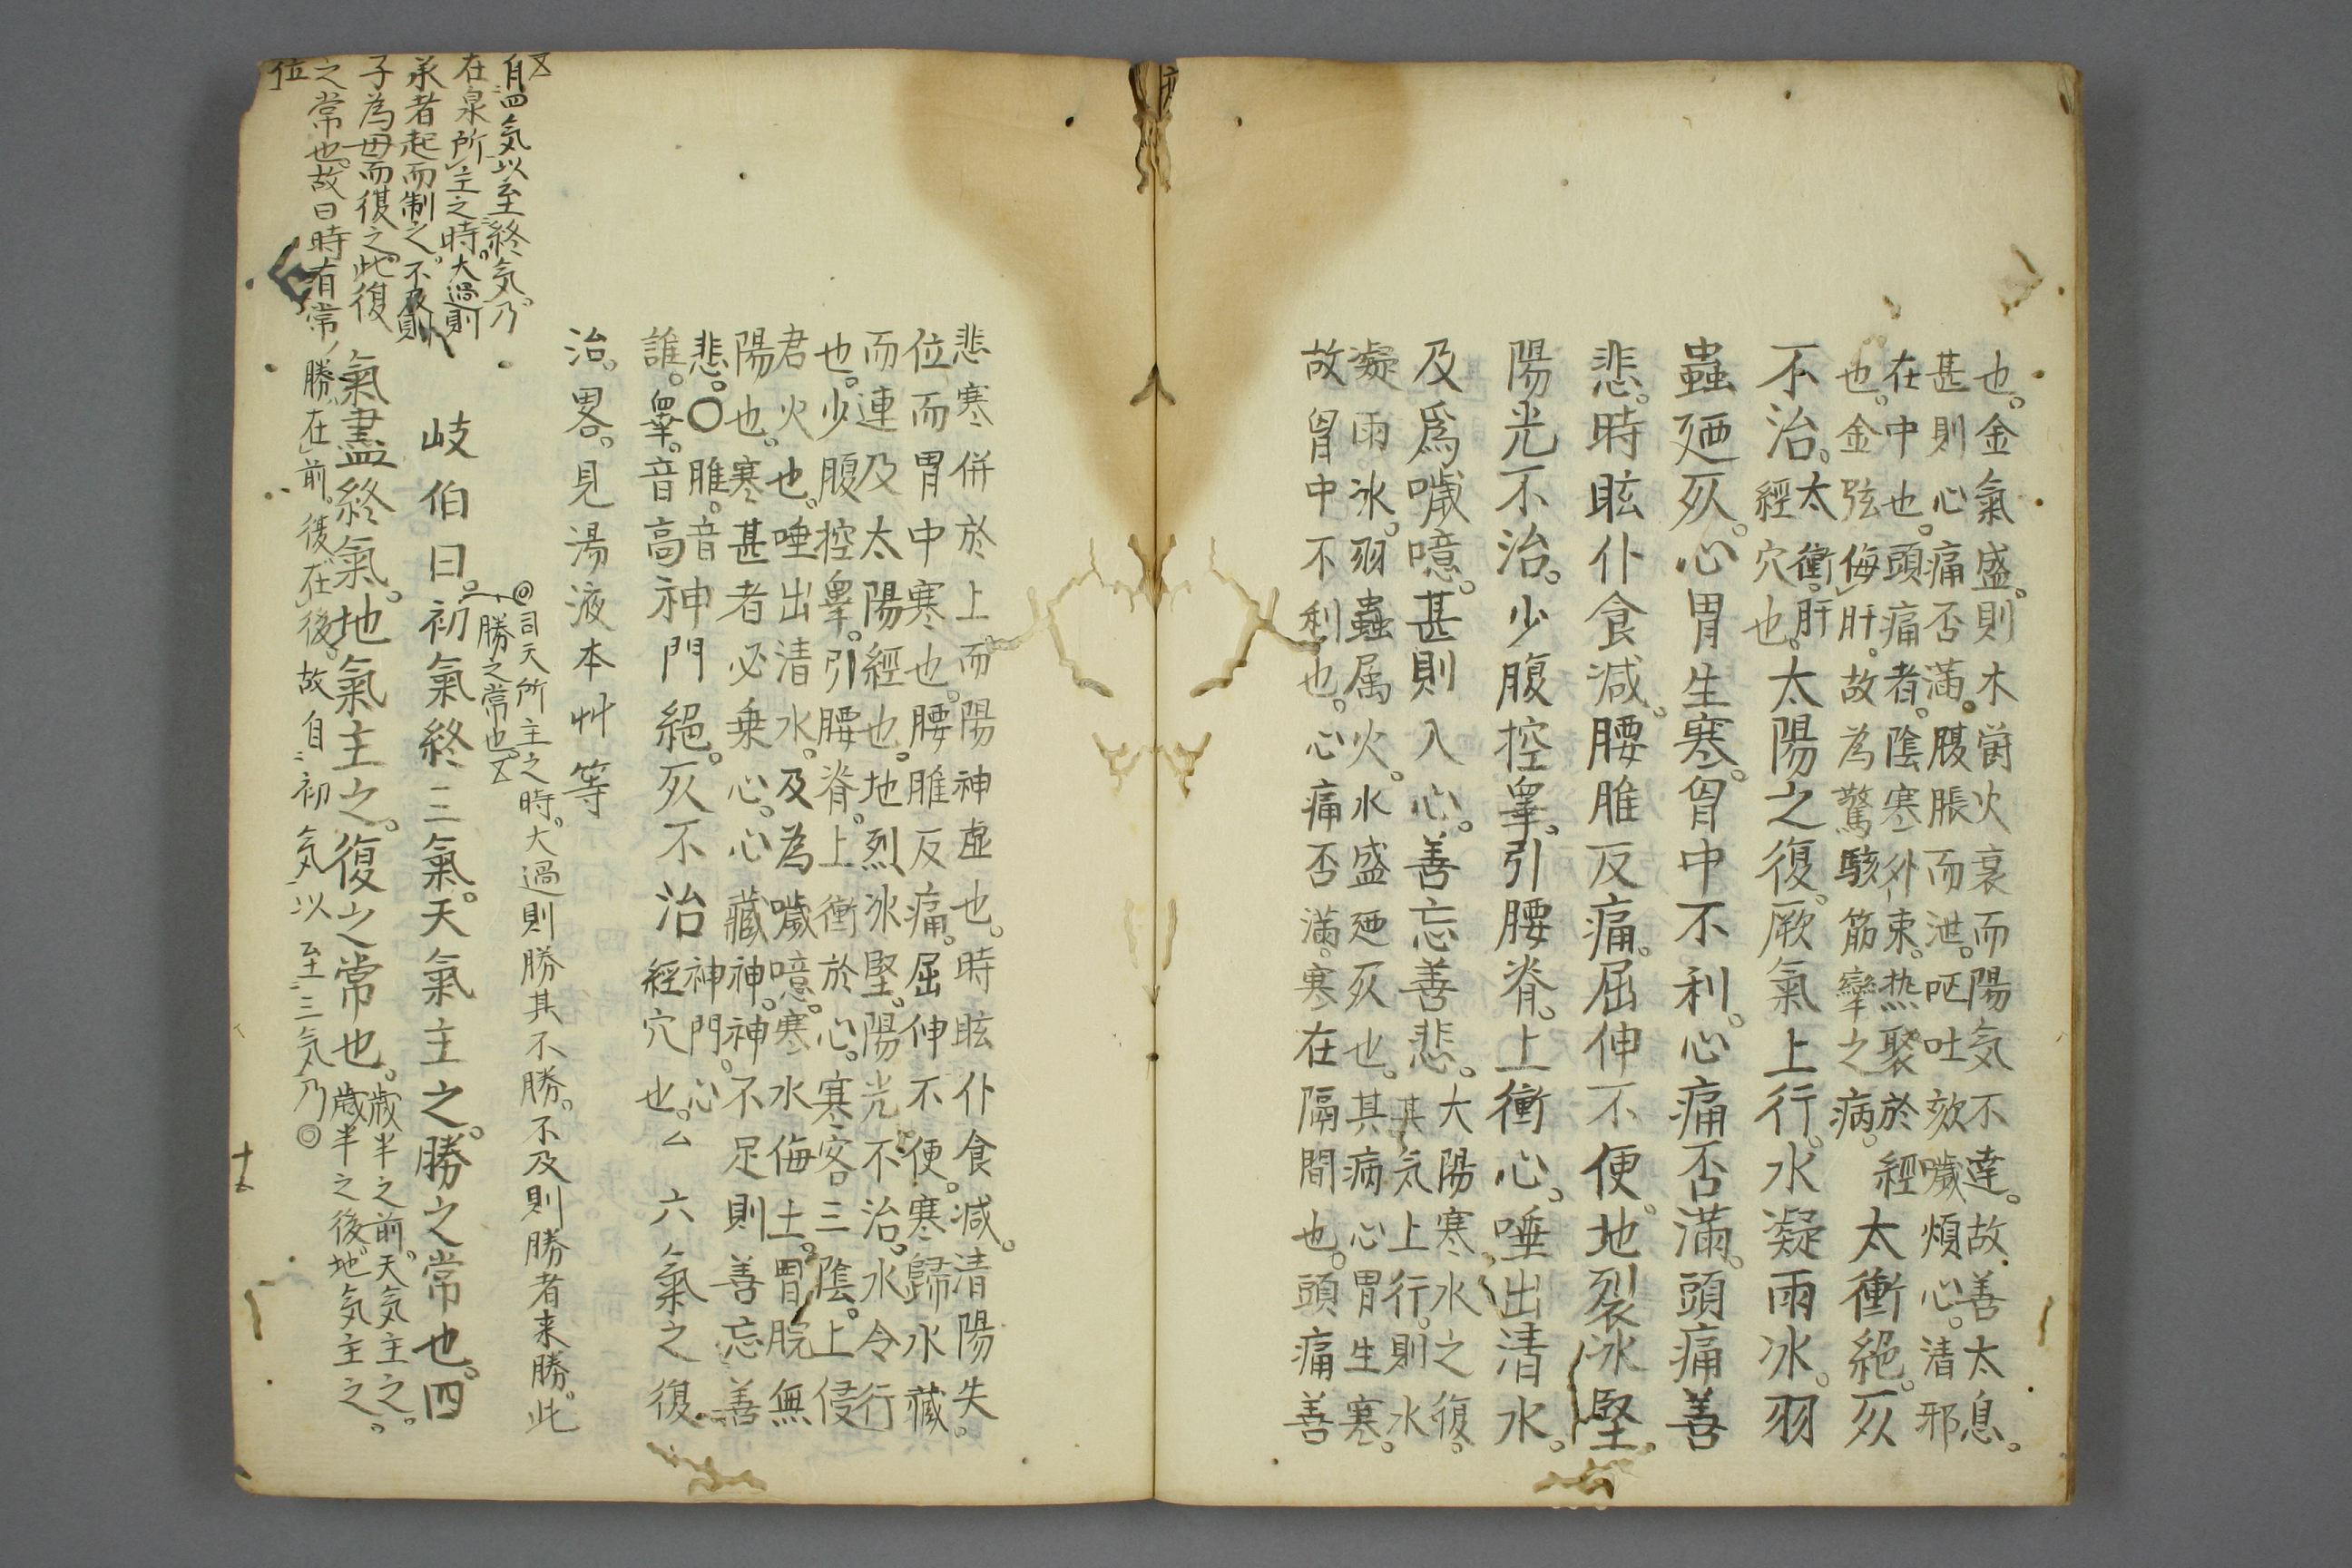 也。金氣盛。則木鬱火衰而陽気不達。故善太息。
甚則心痛否満。腹脹而泄。嘔吐欬噦煩心。清邪
在中也。頭痛者。陰寒外束。热聚於經
也。金弦侮肝。故為驚駭筋攣之病。
太衝絕。死
不治。
太衝。肝
經穴也。
太陽之復。厥氣上行。水凝雨冰。羽
蟲廼死。心胃生寒。胷中不利。心痛否滿。頭痛善
悲。時眩仆食減。腰脽反痛。屈伸不便。地裂冰堅。
陽光不治。少腹控睾。引腰脊。上衝心。唾出清水。
及爲噦噫。甚則入心。善忘善悲。
大陽寒水之復。
其気上行。則水
凝雨冰。羽蟲属火。水盛廼死也。其病心胃生寒。
故胷中不利也。心痛否滿。寒在隔間也。頭痛善
悲寒併於上而陽神虚也。時眩仆食減。清陽失
位而胃中寒也。腰脽反痛。屈伸不便。寒歸水藏
而連及太陽經也。地烈冰堅。陽光不治。水令行
也。少腹控睾。引腰脊。上衝於心。寒客三陰。上侵
君火也。唾出清水。及為噦噫。寒水侮土。胃脘無
陽也。寒甚者必乗心。心藏神。神不足則善忘善
悲。〇脽。音
誰。睾。音高
神門絕。死不治
神門。心
經穴也。
六氣之復
治。畧。見湯液本艸等
◎司天所主之時。大過則勝其不勝。不及則勝者来勝。此
勝之常也。
岐伯曰。初氣終三氣。天氣主之。勝之常也。四
氣盡終氣。地氣主之。復之常也。
歳半之前。天気主之。
歳半之後。地気主之。
勝在前。復在後。故自初気以至三気乃◎
自四気以至終気。乃
在泉所主之時。大過則
承者起而制之。不及則
子為母而復之。此復
之常也。故曰時有常
位
十五